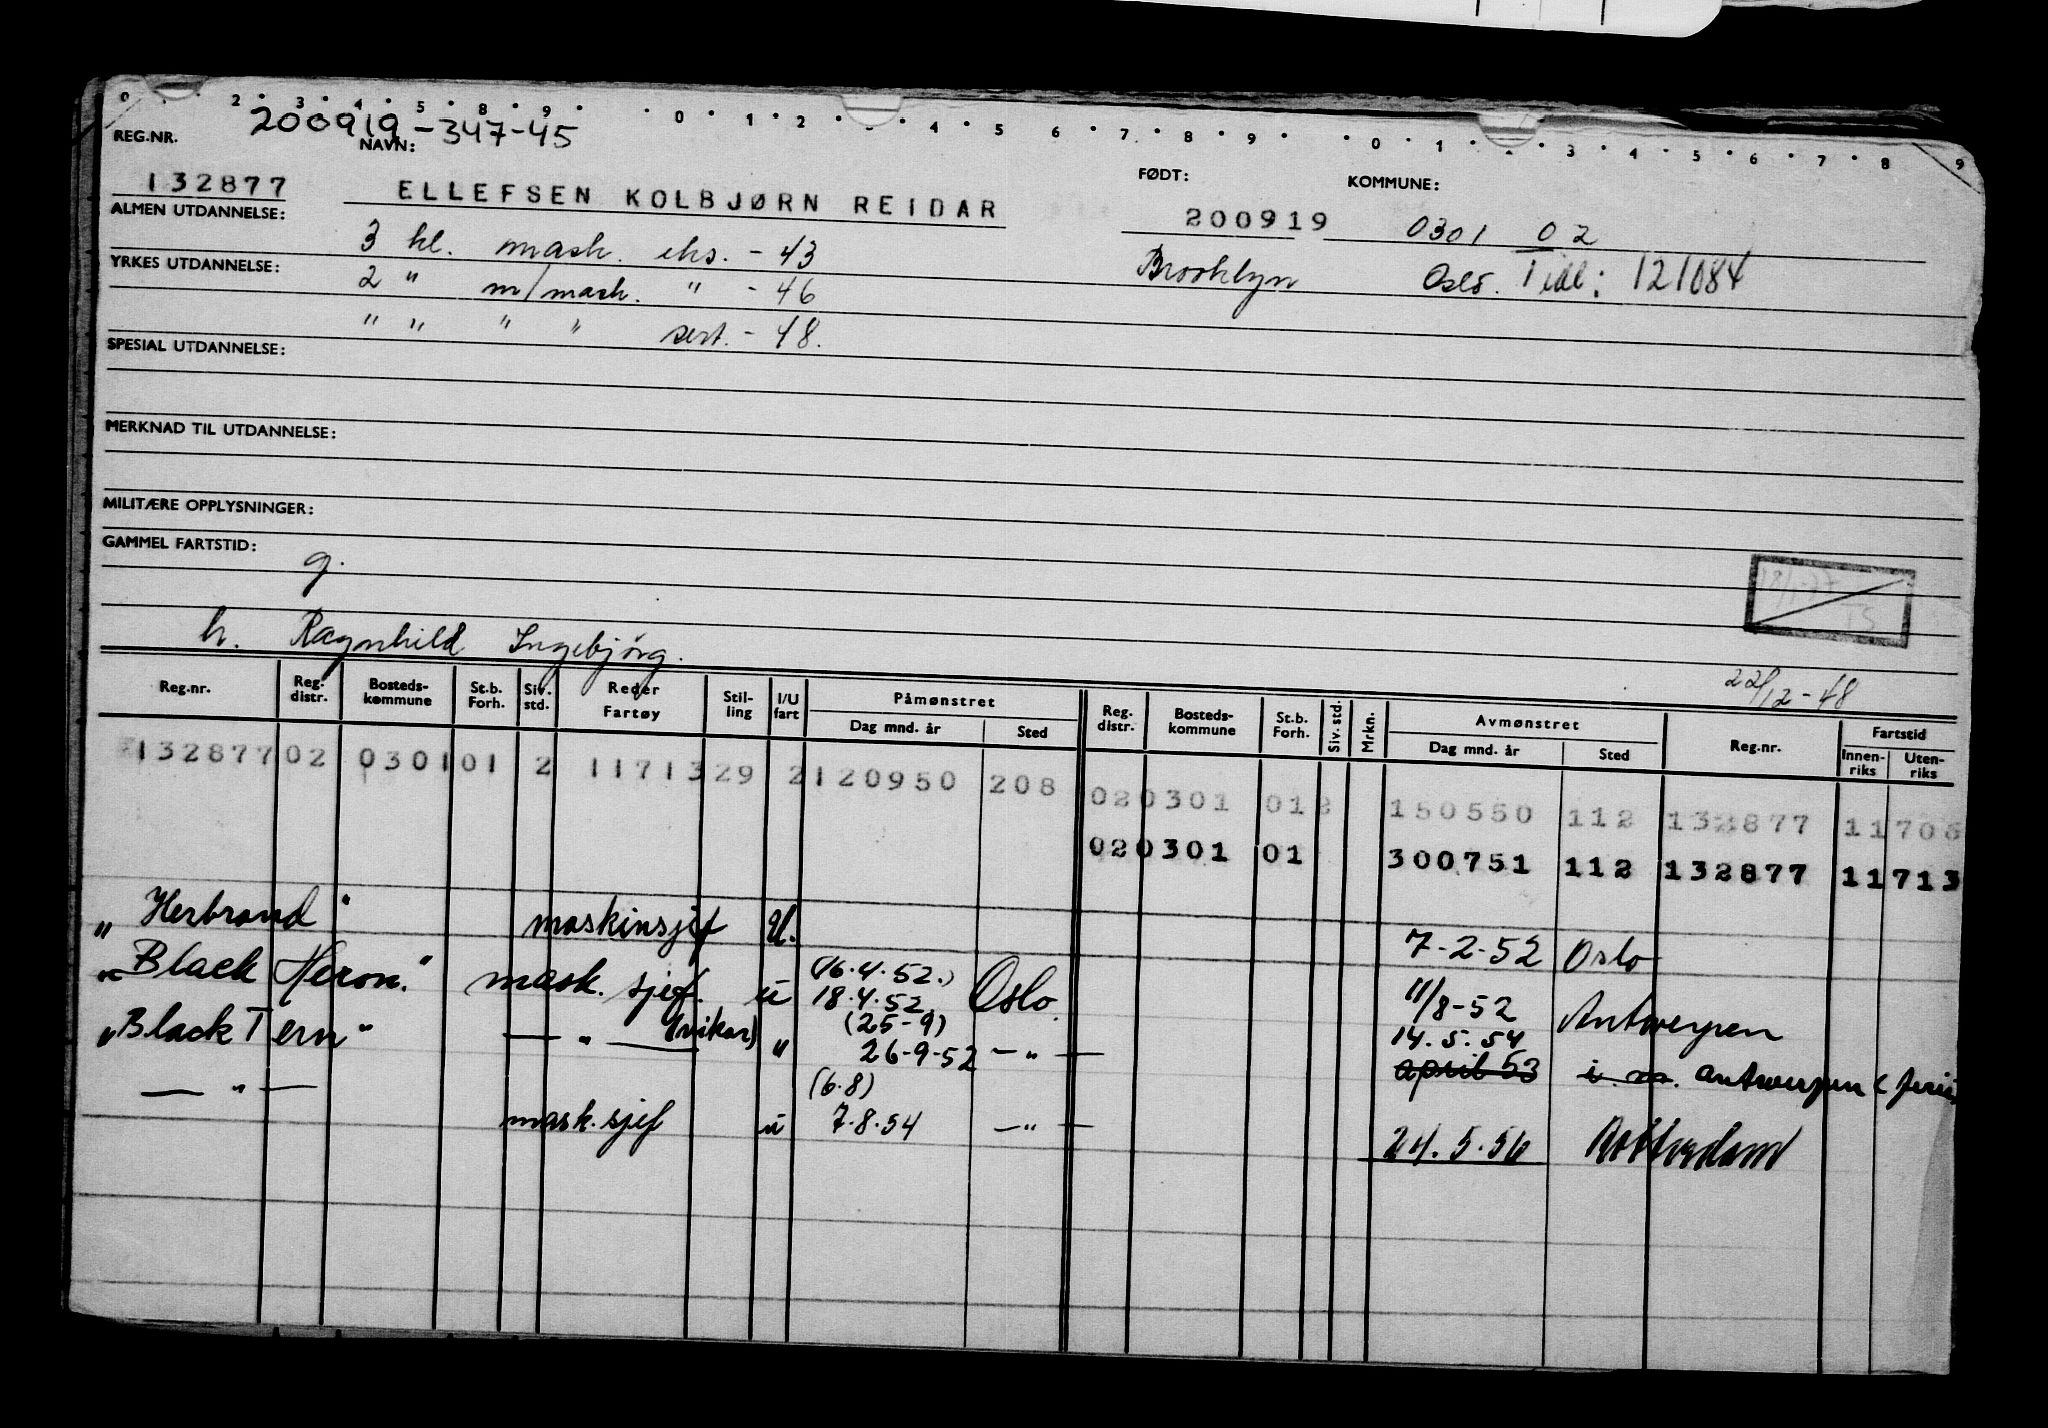 0 2 3 4 5 8 9 0 1 2 4 5 6 7 8 9 0 1 3 4 5 6 7 8 9
200919-347-45
REG.NR. NAVN: FØDT: KOMMUNE:
132877 ELLEFSEN KOLBJØRN REIDAR 200919 0301 02
ALMEN UTDANNELSE: 3 kl. mask. eks. - 43 Brooklyn Oslo. Tidl: 121084
YRKES UTDANNELSE: 2 " m/mask. " - 46
" " " " sert. - 48.
SPESIAL UTDANNELSE:
MERKNAD TIL UTDANNELSE:
MILITÆRE OPPLYSNINGER:
GAMMEL FARTSTID: g.
18/1-77 TS
h. Ragnhild Ingebjörg.
22/12-48
Reg.nr. Reg. distr. Bosteds-kommune St.b. Forh. Siv. std. Reder Fartøy Stil-ling I/U fart Påmønstret Dag mnd. år Sted Reg. distr. Bosteds-kommune St.b. Forh. Siv. std. Mrkn. Avmønstret Dag mnd. år Sted Reg.nr. Fartstid Innen-riks Uten-riks
132877 02 0301 01 2 11713 29 2 120950 208
02 0301 01 2 150550 112 132877 11706
02 0301 01 300751 112 132877 11713
"Herbrand" maskinsjef U. 7-2-52 Oslo
"Black Heron." mask. sjef. u (16.4.52.) 18.4.52 Oslo. 11/8-52 Antwerpen
"Black Tern" — " — (vikar) " (25-9) 26-9-52 — " — 14.5.54
april 53 i. m. Antwerpen (ferie)
— " — mask.sjef u (6.8) 7.8.54 — " — 24.5.56 Rotterdam